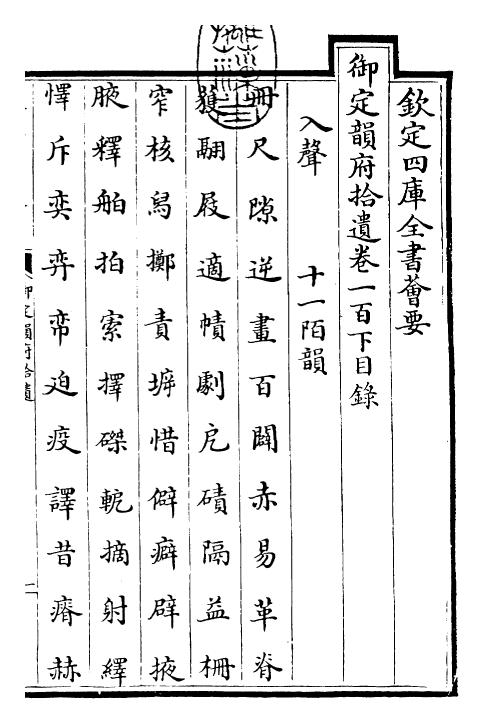 欽定四庫全書薈要
御定韻府拾遺卷一百下目錄
入聲 十一陌韻
冊尺隙逆畫百闢赤易革脊
獲翮屐適幘劇戹磧隔益柵
窄核舄擲責擗惜僻癖辟掖
腋釋舶拍索擇磔軛摘射繹
懌斥奕弈帟迫疫譯昔瘠赫
御定韻府拾遺